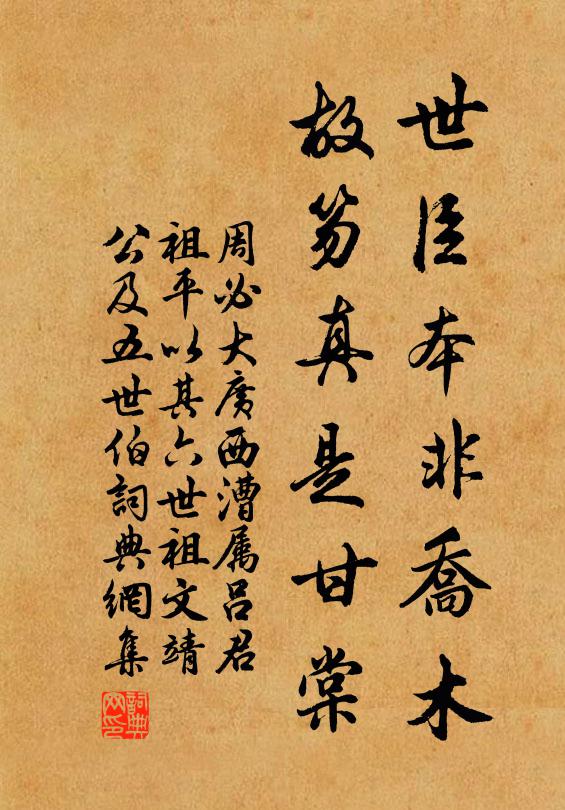 世臣本非喬木
故笏真是甘棠
周必大廣西漕属吕君
祖平以其六世祖文靖
公及五世伯詞典網集
詞典网印